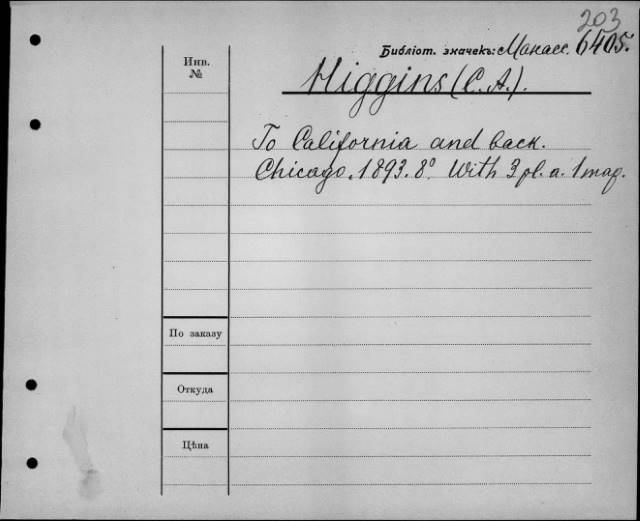 203
Библіот. значекъ: Манасс. 6405.
Инв.
№
Higgins (C. A.).
To California and back.
Chicago. 1893. 8°. With 3 pl. a. 1 map.
По заказу
Откуда
Цѣна